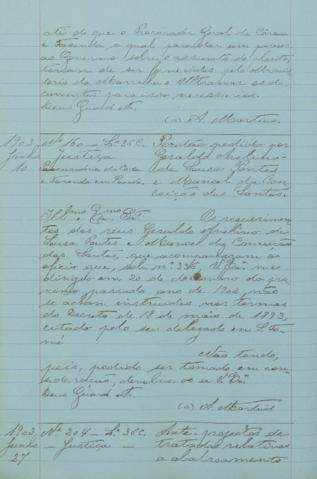 até de que o Procurador Geral da Corôa
e Fazenda, o qual para dar um parecer
ao Governo sobre o assumpto de
tem de ser fornecidos pelo Minis-
terio da Marinha e Ultramar os do-
cumentos para isso necessarios.
Deus Guarde A.
(a) A. Martins.
1903 Nº 160 - Lº 36C. Perdão pedido por
Junho Justiça Geraldo Avelino
10 de Sousa Pontes
e Fazenda e Manoel da Con-
ceição dos Santos.
Illmo Exmo Snr. Os requerimen-
tos dos reus Geraldo Avelino de
Sousa Pontes e Manoel da Conceição
dos Santos, que acompanharam o
officio que, sob nº 336, V. Exa. me
dirigiu em 20 de dezembro do pro-
ximo passado ano de 1902, não
se acham instruidos nos termos
do Decreto de 18 de maio de 1893,
citado pelo seu delegado em S. Tho-
mé.
Não tendo,
pois, podido ser tomado em con-
sideração, devolvo-os a V. Exa.
Deus Guarde A.
(a) A. Martins
1903 Nº 204 - Lº 36C. Ante projectos de
Junho - Justiça - tratados relativos
27 a abalroamento